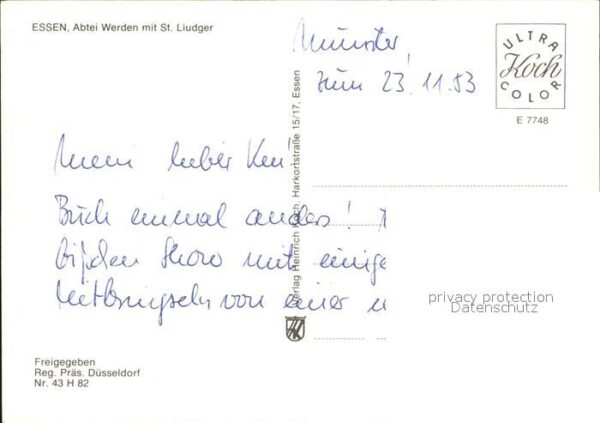 ESSEN, Abtei Werden mit St. Liudger
Münster,
zum 23.11.83
ULTRA
Koch
COLOR
E 7748
Mein lieber
Buch einmal anders!
Show mit einige
Mitbringseln von einer
Verlag Heinrich Koch, Harkortstraße 15/17, Essen
privacy protection
Datenschutz
Freigegeben
Reg. Präs. Düsseldorf
Nr. 43 H 82